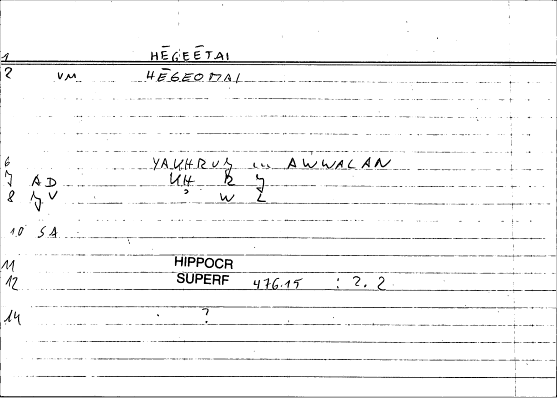 1 HĒGEĒTAI
2 VM HĒGEOMAI
6 YAUHRUǧ ... AWWALAN
7 AD UH R ǧ
8 ǧV ʾ W L
10 SA
11 HIPPOCR
12 SUPERF 476.15 : 2. 2
14 . ?